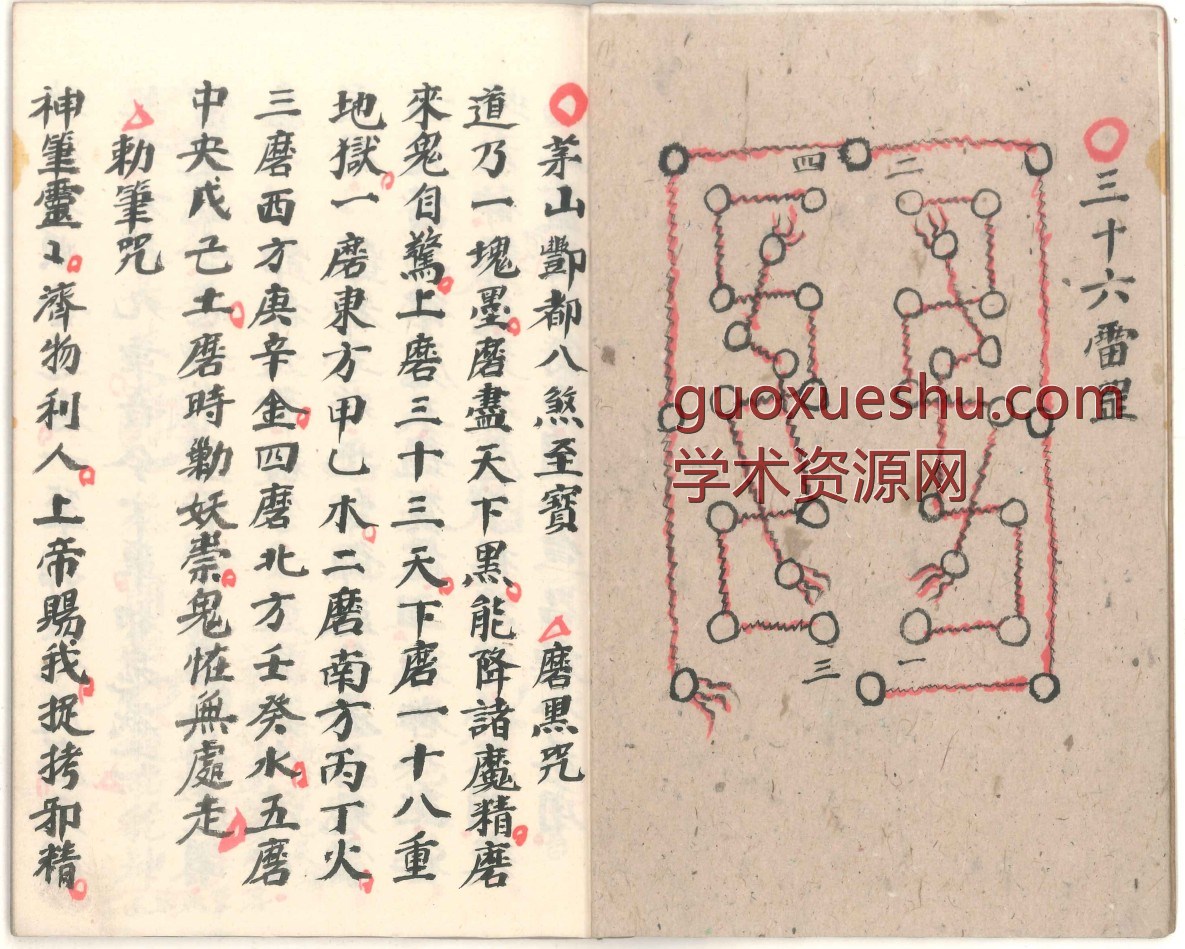 三十六雷罡
二
四
一
三
guoxueshu.com
学术资源网
茅山酆都八煞至寳 磨黒咒
道乃一塊墨磨盡天下黒能降諸魔精磨
來鬼自驚上磨三十三天下磨一十八重
地獄一磨東方甲乙木二磨南方丙丁火
三磨西方庚辛金四磨北方壬癸水五磨
中央戊己土磨時勦妖祟鬼怪無處走
勅筆咒
神筆靈〻濟物利人上帝賜我捉拷邪精